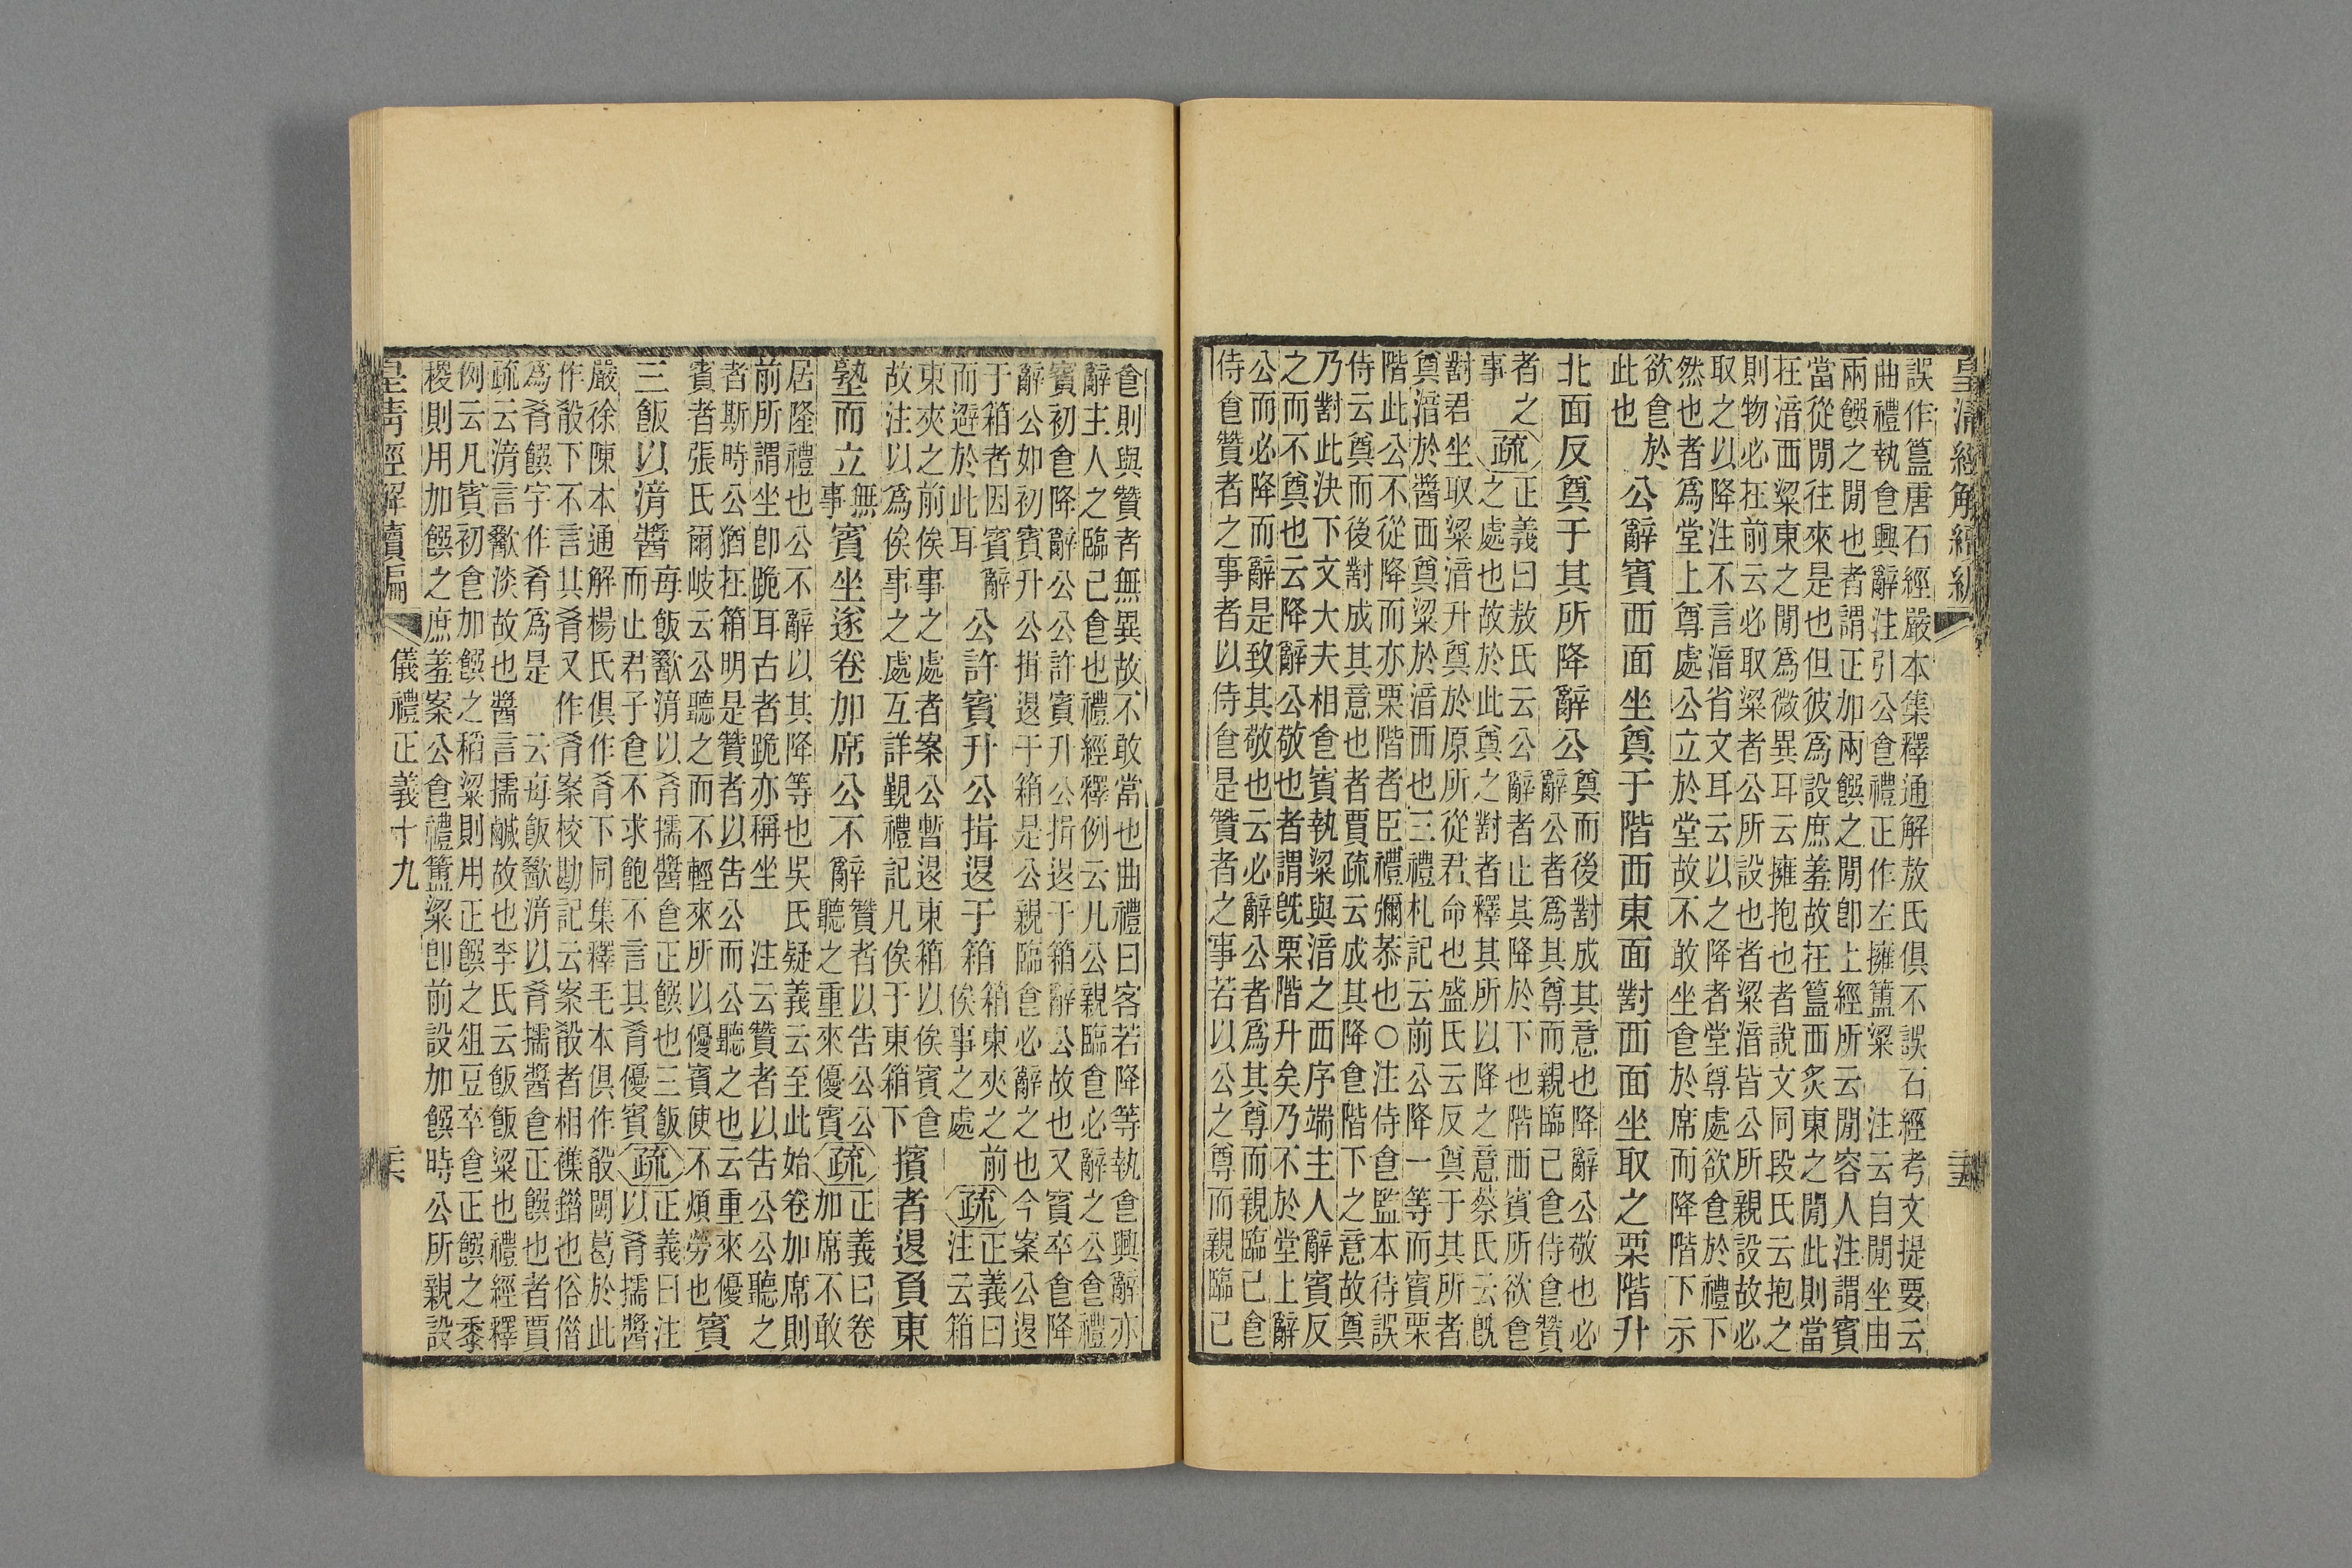 皇清經解續編
誤作簋唐石經嚴本集釋通解敖氏俱不誤石經考文提要云
曲禮執食興辭注引公食禮正作左擁簠粱　注云自閒坐由
兩饌之閒也者謂正加兩饌之閒卽上經所云閒容人注謂賓
當從閒往來是也但彼爲設庶羞故在簋西炙東之閒此則當
在湇西粱東之閒爲微異耳云擁抱也者說文同段氏云抱之
則物必在前云必取粱者公所設也者粱湇皆公所親設故必
取之以降注不言湇省文耳云以之降者堂尊處欲食於禮下
然也者爲堂上尊處公立於堂故不敢坐食於席而降階下示
欲食於
此也
公辭賓西面坐奠于階西東面對西面坐取之栗階升
北面反奠于其所降辭公
奠而後對成其意也降辭公敬也必
辭公者爲其尊而親臨己食侍食贊
者之
事
疏
正義曰敖氏云公辭者止其降於下也階西賓所欲食
之處也故於此奠之對者釋其所以降之意蔡氏云旣
對君坐取粱湇升奠於原所從君命也盛氏云反奠于其所者
奠湇於醬西奠粱於湇西也三禮札記云前公降一等而賓栗
階此公不從降而亦栗階者臣禮彌恭也○注侍食監本待誤
侍云奠而後對成其意也者賈疏云成其降食階下之意故奠
乃對此決下文大夫相食賓執粱與湇之西序端主人辭賓反
之而不奠也云降辭公敬也者謂旣栗階升矣乃不於堂上辭
公而必降而辭是致其敬也云必辭公者爲其尊而親臨己食
侍食贊者之事者以侍食是贊者之事若以公之尊而親臨己
食則與贊者無異故不敢當也曲禮曰客若降等執食興辭亦
辭主人之臨己食也禮經釋例云凡公親臨食必辭之公食禮
賓初食降辭公公許賓升公揖退于箱辭公故也又賓卒食降
辭公如初賓升公揖退于箱是公親臨食必辭之也今案公退
于箱者因賓辭
而避於此耳
公許賓升公揖退于箱
箱東夾之前
俟事之處
疏
正義曰
注云箱
東夾之前俟事之處者案公暫退東箱以俟賓食
故注以爲俟事之處互詳覲禮記凡俟于東箱下
擯者退負東
塾而立
無
事
賓坐遂卷加席公不辭
贊者以告公公
聽之重來優賓
疏
正義曰卷
加席不敢
居隆禮也公不辭以其降等也吳氏疑義云至此始卷加席則
前所謂坐卽跪耳古者跪亦稱坐　注云贊者以告公公聽之
者斯時公猶在箱明是贊者以告公而公聽之也云重來優
賓者張氏爾岐云公聽之而不輕來所以優賓使不煩勞也
賓
三飯以湇醬
每飯歠湇以肴擩醬食正饌也三飯
而止君子食不求飽不言其肴優賓
疏
正義曰注
以肴擩醬
嚴徐陳本通解楊氏俱作肴下同集釋毛本俱作殽閩葛於此
作殽下不言其肴又作肴案校勘記云案殽者相襍錯也俗偕
爲肴饌字作肴爲是　云每飯歠湇以肴擩醬食正饌也者賈
疏云湇言歠淡故也醬言擩鹹故也李氏云飯飯粱也禮經釋
例云凡賓初食加饌之稻粱則用正饌之俎豆卒食正饌之黍
稷則用加饌之庶羞案公食禮簠粱卽前設加饌時公所親設
皇清經解續編
儀禮正義十九